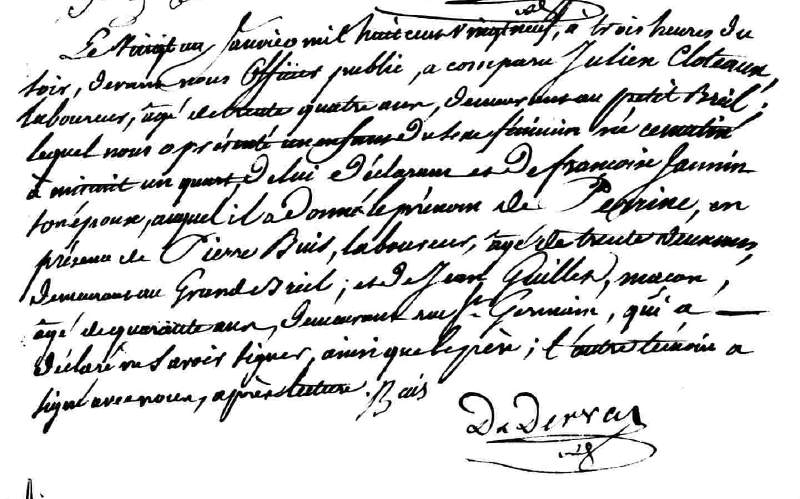 Le vingt un Janvier mil huit cent vingt neuf, a trois heures du
soir, devant nous Officier public, a comparu Julien Cloteaux,
laboureur, âgé de trente quatre ans, demeurant au petit Breil;
lequel nous a présenté un enfant du sexe féminin né ce matin
à minuit un quart, de lui déclarant et de françoise Jannin
son épouse, auquel il a donné le prénom de Perrine, en
présence de Pierre Buis, laboureur, âgé de trente deux ans,
demeurant au Grand Breil; et de Jean Guillet, maçon,
âgé de quarante ans, demeurant rue St. Germain, qui a
déclaré ne savoir signer, ainsi que le père; l'autre témoin a
signé avec nous, après lecture. Buis
De Derval